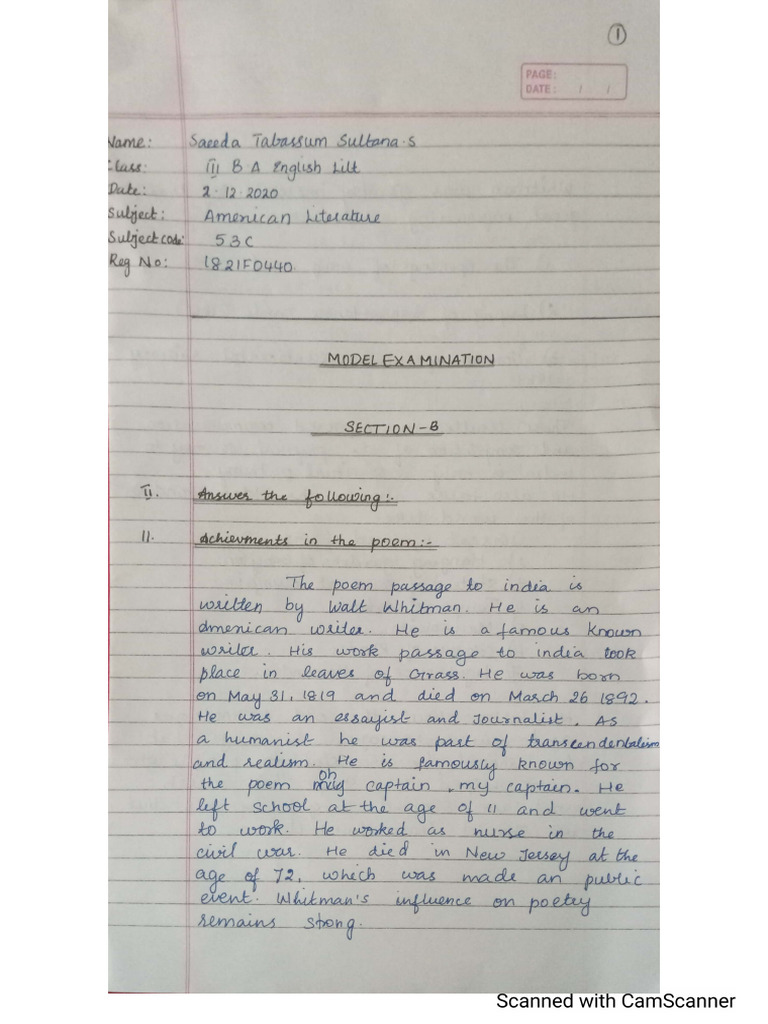 1
PAGE:
DATE: / /
Name: Saeeda Tabassum Sultana.S
Class: III B.A English Litt
Date: 2.12.2020
Subject: American Literature
Subject code: 53C
Reg No: 1821F0440.
MODEL EXAMINATION
SECTION-B
II. Answer the following:-
11. Achievments in the poem:-
The poem passage to india is
written by Walt Whitman. He is an
American writer. He is a famous known
writer. His work passage to india took
place in leaves of Grass. He was born
on May 31, 1819 and died on March 26 1892.
He was an essayist and Journalist. As
a humanist he was part of transcendentalism
and realism. He is famously known for
the poem oh captain, my captain. He
left school at the age of 11 and went
to work. He worked as nurse in the
civil war. He died in New Jersey at the
age of 72, which was made an public
event. Whitman's influence on poetry
remains strong.
Scanned with CamScanner